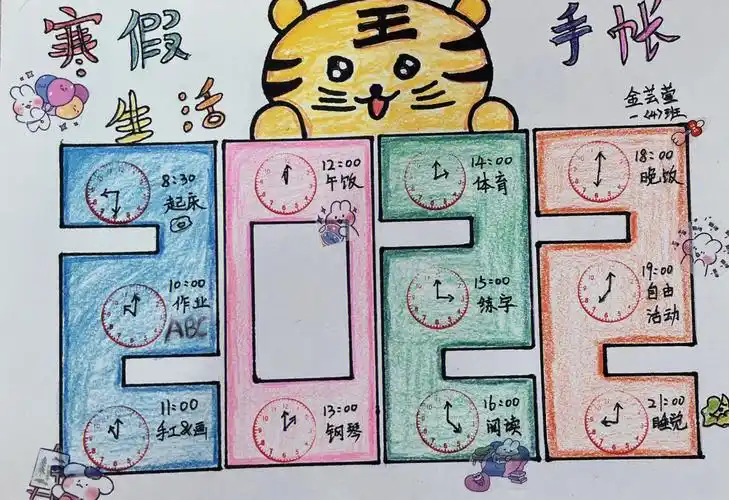 寒假
手帐
生活
金芸萱
一(4)班
8:30
起床
10:00
作业
ABC
11:00
手工&画
12:00
午饭
13:00
钢琴
14:00
体育
15:00
练字
16:00
阅读
18:00
晚饭
19:00
自由
活动
21:00
睡觉
2022